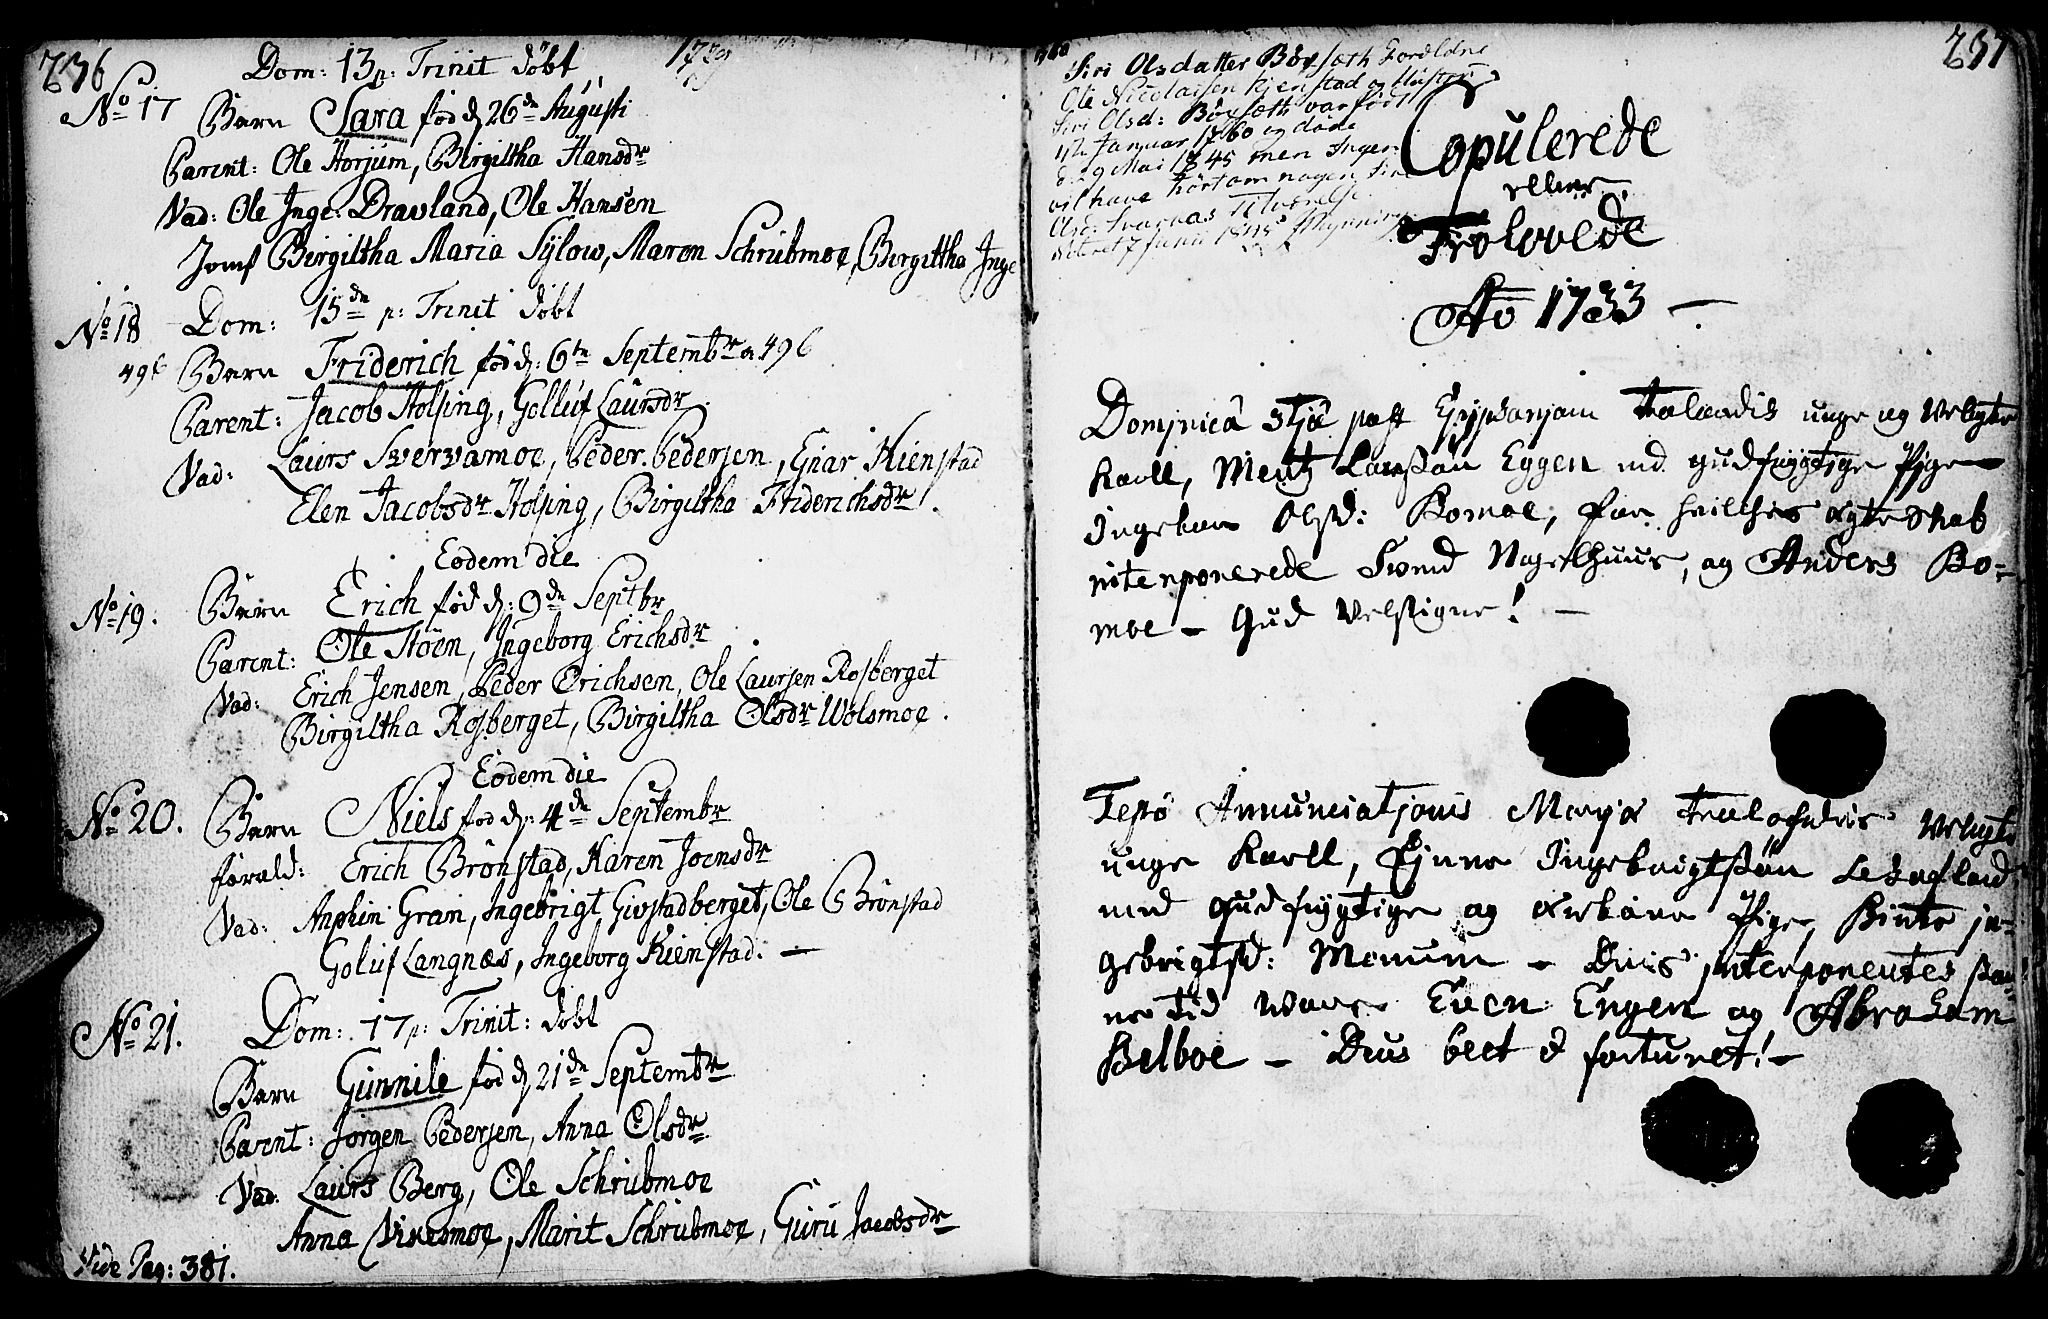 236
Dom: 13 p: Trinit döbt 1779
No 17
Barn Sara född 26de Augusti
Parent: Ole Horjum, Birgiltha Hansdr
Vad: Ole Inge: Dravland, Ole Hansen
Jomf Birgiltha Maria Sylow, Maren Schrubmoe, Birgittha Inge
No 18 Dom: 15de p: Trinit döbt
496 Barn Friderich föd d: 6te Septembr a 496
Parent: Jacob Holsing, Golluf Laursdr
Vad: Laurs Svervamoe, Peder Pedersen, Einar Kienstad
Elen Jacobsdr Holsing, Birgiltha Friderichsdr.
Eodem die
No 19. Barn Erich föd d: 9de Septbr
Parent: Ole Höen, Ingeborg Erichsdr
Vad: Erich Jensen, Peder Erichsen, Ole Laursen Rosberget
Birgiltha Rosberget, Birgiltha Olsdr Wolsmoe.
Eodem die
No 20. Barn Niels föd d: 4de Septembr
förald: Erich Brönstad, Karen Joensdr
Vad: Anphin Gran, Ingebrigt Givstadberget, Ole Brönstad
Goluf Langnæs, Ingeborg Kienstad. —
No 21. Dom: 17 p: Trinit: döbt
Barn Gunnile föd d 21de Septembr
Parent: Jörgen Pedersen, Anna Olsdr
Vad: Laurs Berg, Ole Schrubmoe
Anna Vixesmoe, Marit Schrubmoe, Guru Jacobsdr
Vide Pag: 381.
237
Siri Olsdatter Böysæth Foreldre
Ole Nicolaisen Kjenstad og Hustru
Siri Olsd: Böysæth var född
Januar 1760 og döde
d. 29 Mai 1845 men Ingen
vil have hört om nogen Siri
Olsd:
Noteret 7 Junii 1845
Copulerede
eller
Trolovede
Ao 1733 —
Dominicâ 3tiâ post Epiphaniam trolovedis unge og velagte
Karll, Mentz Larssön Eggen med gudfrygtige Pige
Ingebor Olsd: Bomoe, for hvilches ægteskab
interponerede Svend Nagelhuus, og Anders Bo-
moe — Gud velsigne! —
Festo Annunciationis Mariæ trolofvedis velagte
unge Karll, Finne Ingebrigtssön Leraflaad
med gudfrygtige og ærbare Pige, Birite In-
gebrigtsd: Monum — Dieis interponentes
tid Vare Even Engen og Abraham
Belboe — Deus beet & fortunet! —